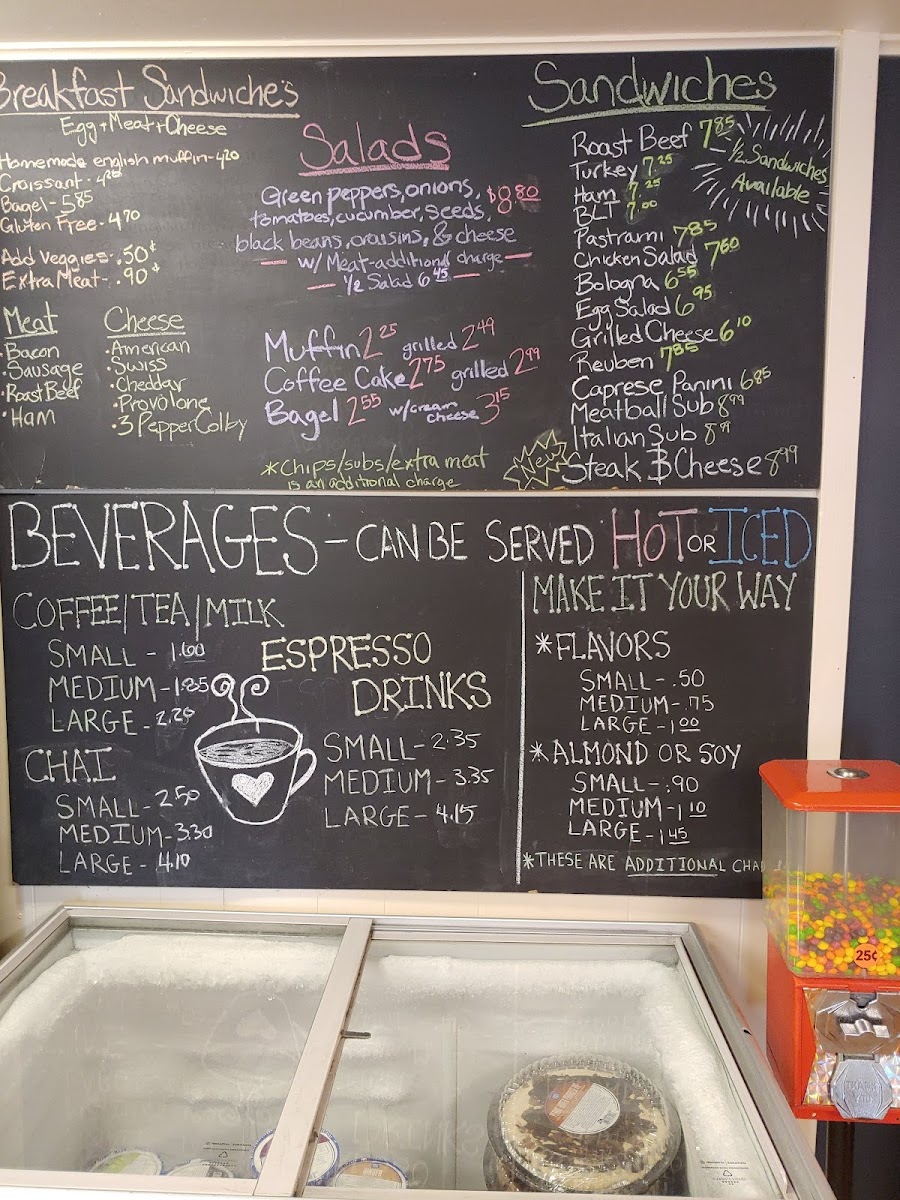 Breakfast Sandwiche's
Egg+Meat+Cheese
Homemade english muffin-4.20
Croissant-
Bagel-5.85
Gluten Free-4.70
Add Veggies-.50¢
Extra Meat-.90¢
Meat
•Bacon
•Sausage
•Roast Beef
•Ham
Cheese
•American
•Swiss
•Cheddar
•Provolone
•3 Pepper Colby
Salads
Green peppers, onions, $8.80
tomatoes, cucumber, seeds,
black beans, craisins, & cheese
w/ Meat-additional charge
½ Salad 6.45
Muffin 2.25 grilled 2.49
Coffee Cake 2.75 grilled 2.99
Bagel 2.55 w/cream cheese 3.15
*Chips/subs/extra meat
is an additional charge
Sandwiches
Roast Beef 7.85
Turkey 7.25
Ham 7.25
BLT 7.00
Pastrami 7.85
Chicken Salad 7.60
Bologna 6.55
Egg Salad 6.95
Grilled Cheese 6.10
Reuben 7.85
Caprese Panini 6.85
Meatball Sub 8.99
Italian Sub 8.99
New Steak & Cheese 8.99
½ Sandwiches
Available
BEVERAGES - CAN BE SERVED HOT OR ICED
COFFEE/TEA/MILK
SMALL - 1.60
MEDIUM - 1.85
LARGE - 2.25
CHAI
SMALL - 2.50
MEDIUM - 3.30
LARGE - 4.10
ESPRESSO
DRINKS
SMALL - 2.35
MEDIUM - 3.35
LARGE - 4.15
MAKE IT YOUR WAY
*FLAVORS
SMALL - .50
MEDIUM - .75
LARGE - 1.00
*ALMOND OR SOY
SMALL - .90
MEDIUM - 1.10
LARGE - 1.45
*THESE ARE ADDITIONAL
25¢
THANK
YOU